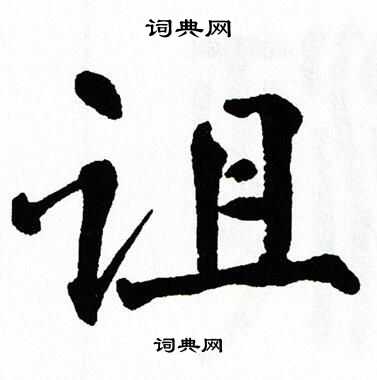 词典网
诅
词典网